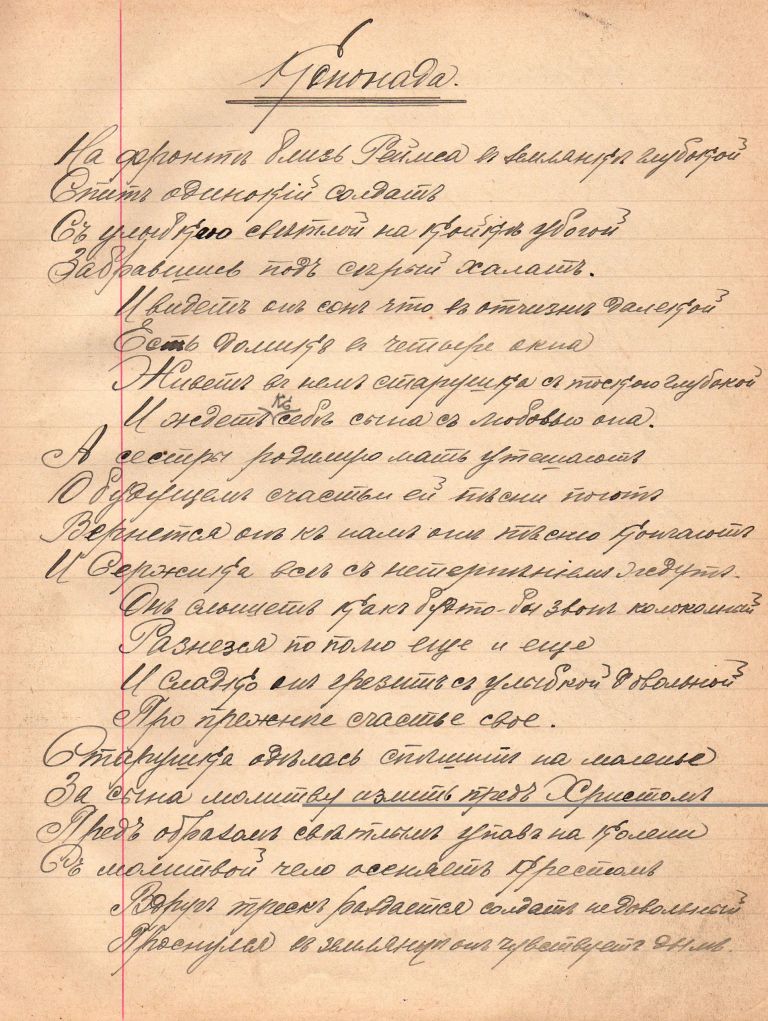 Кепонада.
На фронтѣ близь Реймса въ землянкѣ глубокой
Спитъ одинокій солдатъ
Съ улыбкою свѣтлой на койкѣ убогой
Забравшись подъ сѣрый халатъ.
И видетъ онъ сонъ что въ отчизнѣ далекой
Есть домикъ въ четыре окна
Живетъ въ немъ старушка съ тоскою глубокой
И ждетъ къ себѣ сына съ любовью она.
А сестры родимую мать утешаютъ
О будущемъ счастьи ей пѣсни поютъ
Вернется онъ къ намъ они пѣсню кончаютъ
И Сержика всѣ съ нетерпѣніемъ ждутъ.
Онъ слышетъ какъ будто-бы звонъ колокольный
Разнезся по полю еще и еще
И сладко онъ грезитъ съ улыбкой довольной
Про прежнье счастье свое.
Старушка одѣлась спѣшитъ на моленье
За сына молитву излить предъ Христомъ
Предъ образомъ свѣтлымъ упавъ на колени
Съ молитвой чело осеняетъ крестомъ
Вдругъ трескъ раздается солдатъ недовольный
Проснулся въ землянкѣ онъ чувствуетъ дымъ.